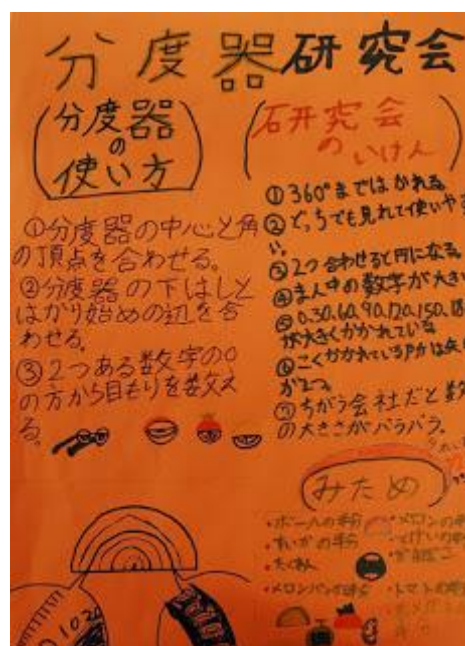 分度器研究会
分度器
の
使い方
研究会
のいけん
①分度器の中心と角
の頂点を合わせる。
②分度器の下はしと
はかり始めの辺を合
わせる。
③2つある数字の0
の方から目もりを数え
る。
①360°まではかれる
②どっちでも見れて使いや
い。
③2つ合わせると円になる。
④まん中の数字が大き
⑤0.30.60.90.120.150.18
が大きくかかれている
⑥こくかかれている
が2つ。
⑦ちがう会社だと数
の大きさがバラバラ。
みため
・ボールの半分
・メロンの半
・すいかの半分
・とけいの半
・たくあん
・メロンパンの半分
・トマトの
1020